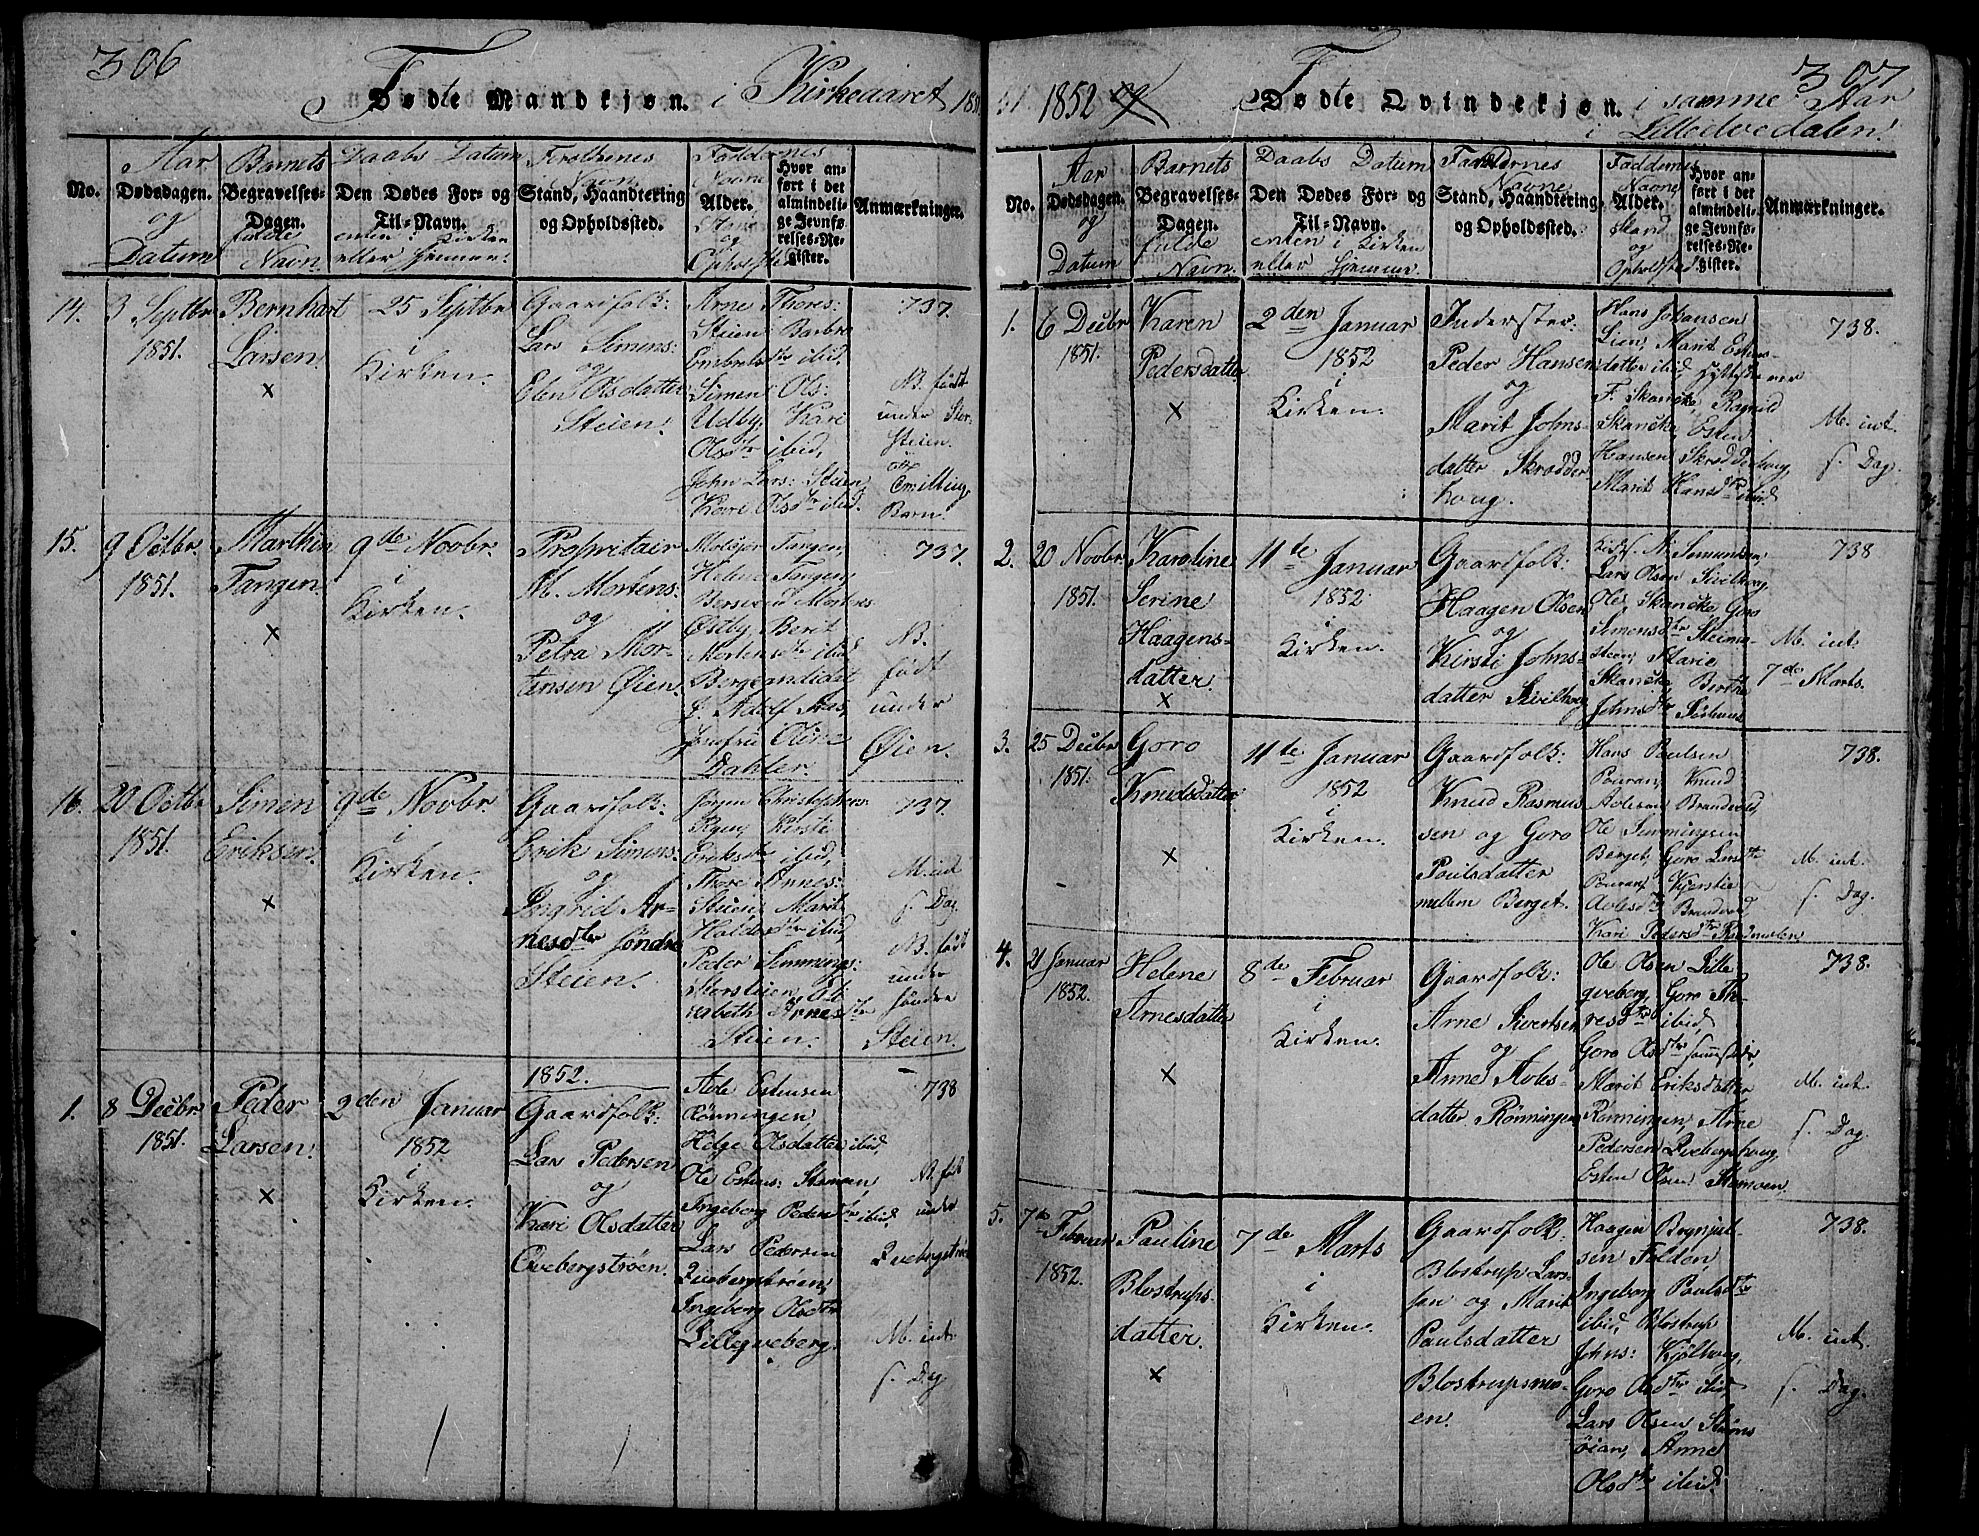 306
Fødte Mandkjøn. i Kirkeaaret 1851
No.
Aar
Dødsdagen.
og
Datum
Barnets
Begravelses-
Dagen.
fulde
Navn.
Daabs Datum
Den Dødes For- og
Til-Navn.
enten i Kirken
eller Hjemme.
Stand, Haandtering
og Opholdssted.
Navn
Alder.
og
Hvor an-
ført i det
almindeli-
ge Jevnfø-
relses-Re-
gister.
Anmærkninger.
14.
3 Septbr
1851.
Bernhart
Larsen.
×
25 Septbr
i
Kirken.
Gaardfolk:
Lars Simens:
og
Olsdatter
Steien.
Arne Thores:
Steien Barbro
Embrets dtr ibid.
Simen Ols:
Udby, Kari
Olsdtr ibid,
John Lars: Steien,
Kari Olsdtr ibid.
737.
NB. født
under Stor-
steien.
Barn.
15.
9 Octbr.
1851.
Marthin
Tangen.
×
9de Novbr.
i
Kirken.
Proprietair
M. Mortens:
og
Petra Mor-
tensen Øien.
Tangen,
Helene Tangen,
Østby, Berit
Mortens dtr ibid
Bergcandidat
Adolf Aas,
Jomfru Oline
Dahler.
737.
NB.
født
under
Øien.
16.
20 Octbr
1851.
Simen
Eriksen.
×
9de Novbr
i
Kirken.
Gaardfolk:
Erik Simens:
og
Ingrid Ar-
nesdtr søndre
Steien.
Jørgen Christophers:
Kirsti
Eriksdtr ibid,
Thore Arnes:
Steien, Marit
Haldorsdtr ibid,
Peder Simmings:
Storsteien, Eli-
sabeth Arnesdtr
Steien.
737.
M. int.
s. Dag.
NB. født
under
søndre
Steien.
1852.
1.
8 Decbr
1851.
Peder
Larsen.
×
2den Januar
1852
i
Kirken.
Gaardfolk:
Lars Pedersen
og
Kari Olsdatter
Qvebergstrøen.
Estensen
Rønningen,
Helge Olsdatter ibid,
Ole Estens: Stamoen,
Ingeborg Pedersdtr ibid,
Lars Pedersen
Qvebergstrøen,
Ingeborg Olsdtr
Lilleqveberg.
738
NB. født
under
Qvebergstrøen
M. int.
s. Dag
307
51 1852 og Fødte Qvindekjøn. i samme Aar
i Lilleelvedalen.
No.
Aar
Dødsdagen.
og
Datum
Barnets
Begravelses-
Dagen.
fulde
Navn.
Daabs Datum
Den Dødes For- og
Til-Navn.
enten i Kirken
eller Hjemme.
Navne
Stand, Haandtering
og Opholdssted.
Faddernes
Navne
Alder.
Stand
og
Opholdsted
Hvor an-
ført i det
almindeli-
ge Jevnfø-
relses-Re-
gister.
Anmærkninger.
1.
6 Decbr
1851.
Karen
Pedersdatter
×
2den Januar
1852
i
Kirken.
Inderster:
Peder Hansen
og
Marit Johns-
datter Skrædder-
houg.
Hans Johansen
Lien, Marit Estens-
datter ibid,
F. Skancke, Ragnild
Skancke, Esten
Hansen Skrædderhoug,
Marit Hansdtr ibid.
738.
M. int.
s. Dag.
2.
20 Novbr
1851.
Karoline
Serine
Haagens-
datter.
×
11te Januar
1852
i
Kirken.
Gaardfolk:
Haagen Olsen
og
Kirsti Johns-
datter Sivilhoug
Lars Olsen Sivilhoug,
Ole Skancke, Goro
Simensdtr
Marie
Skancke, Berthe
Johnsdtr
738
M. int.
7de Marts.
3.
25 Decbr
1851.
Goro
Knudsdatter.
×
11te Januar
1852
i
Kirken.
Gaardfolk:
Knud Rasmus-
sen og Goro
Poulsdatter
mellem Berget.
Hans Poulsen
Knud
Brandvold,
Ole Simmingsen
Berget, Goro Larsdtr
Kjerstie
Brandvold
Kari Pedersdtr
738.
M. int.
s. Dag.
4.
21 Januar
1852.
Helene
Arnesdatter
×
8de Februar
i
Kirken.
Gaardfolk:
Arne Sivertsen
og
Anne
datter Rønningen
Ole Olsen Lille-
qveberg, Goro Tho-
resdtr ibid,
Goro Olsdtr sammesteds,
Marit Eriksdatter
Rønningen, Arne
Pedersen Qveberghoug,
Esten Olsen Stamoen.
738.
M. int.
s. Dag.
5.
7de Februar
1852.
Pauline
Blostrups-
datter.
×
7de Marts
i
Kirken.
Gaardfolk.
Blostrup Lars-
sen og Marit
Paulsdatter
Blostrupsmo-
en.
Haagen
sen Folden
Ingeborg Paulsdtr
ibid, Blostrup
Johns: Kjølhoug,
Goro Olsdtr ibid
Lars Olsen
Anne
Olsdtr ibid.
738.
M. int.
s. Dag.